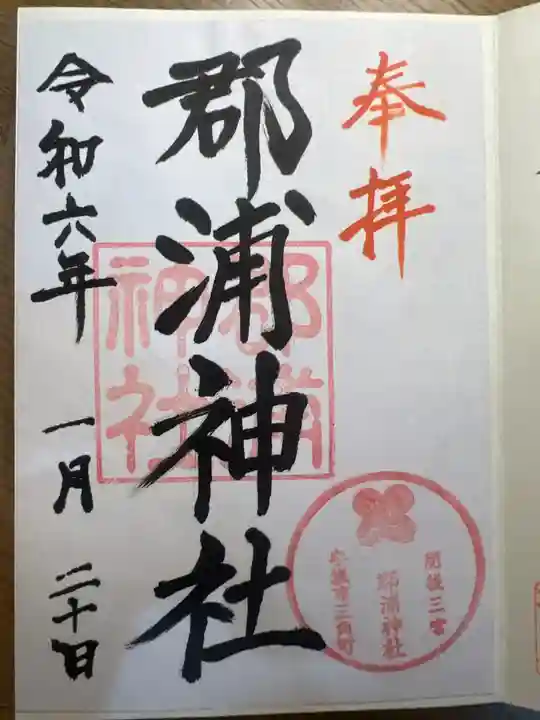 奉拝
郡浦神社
令和六年 一月 二十日
郡浦神社
肥後三宮
郡浦神社
宇城市三角町